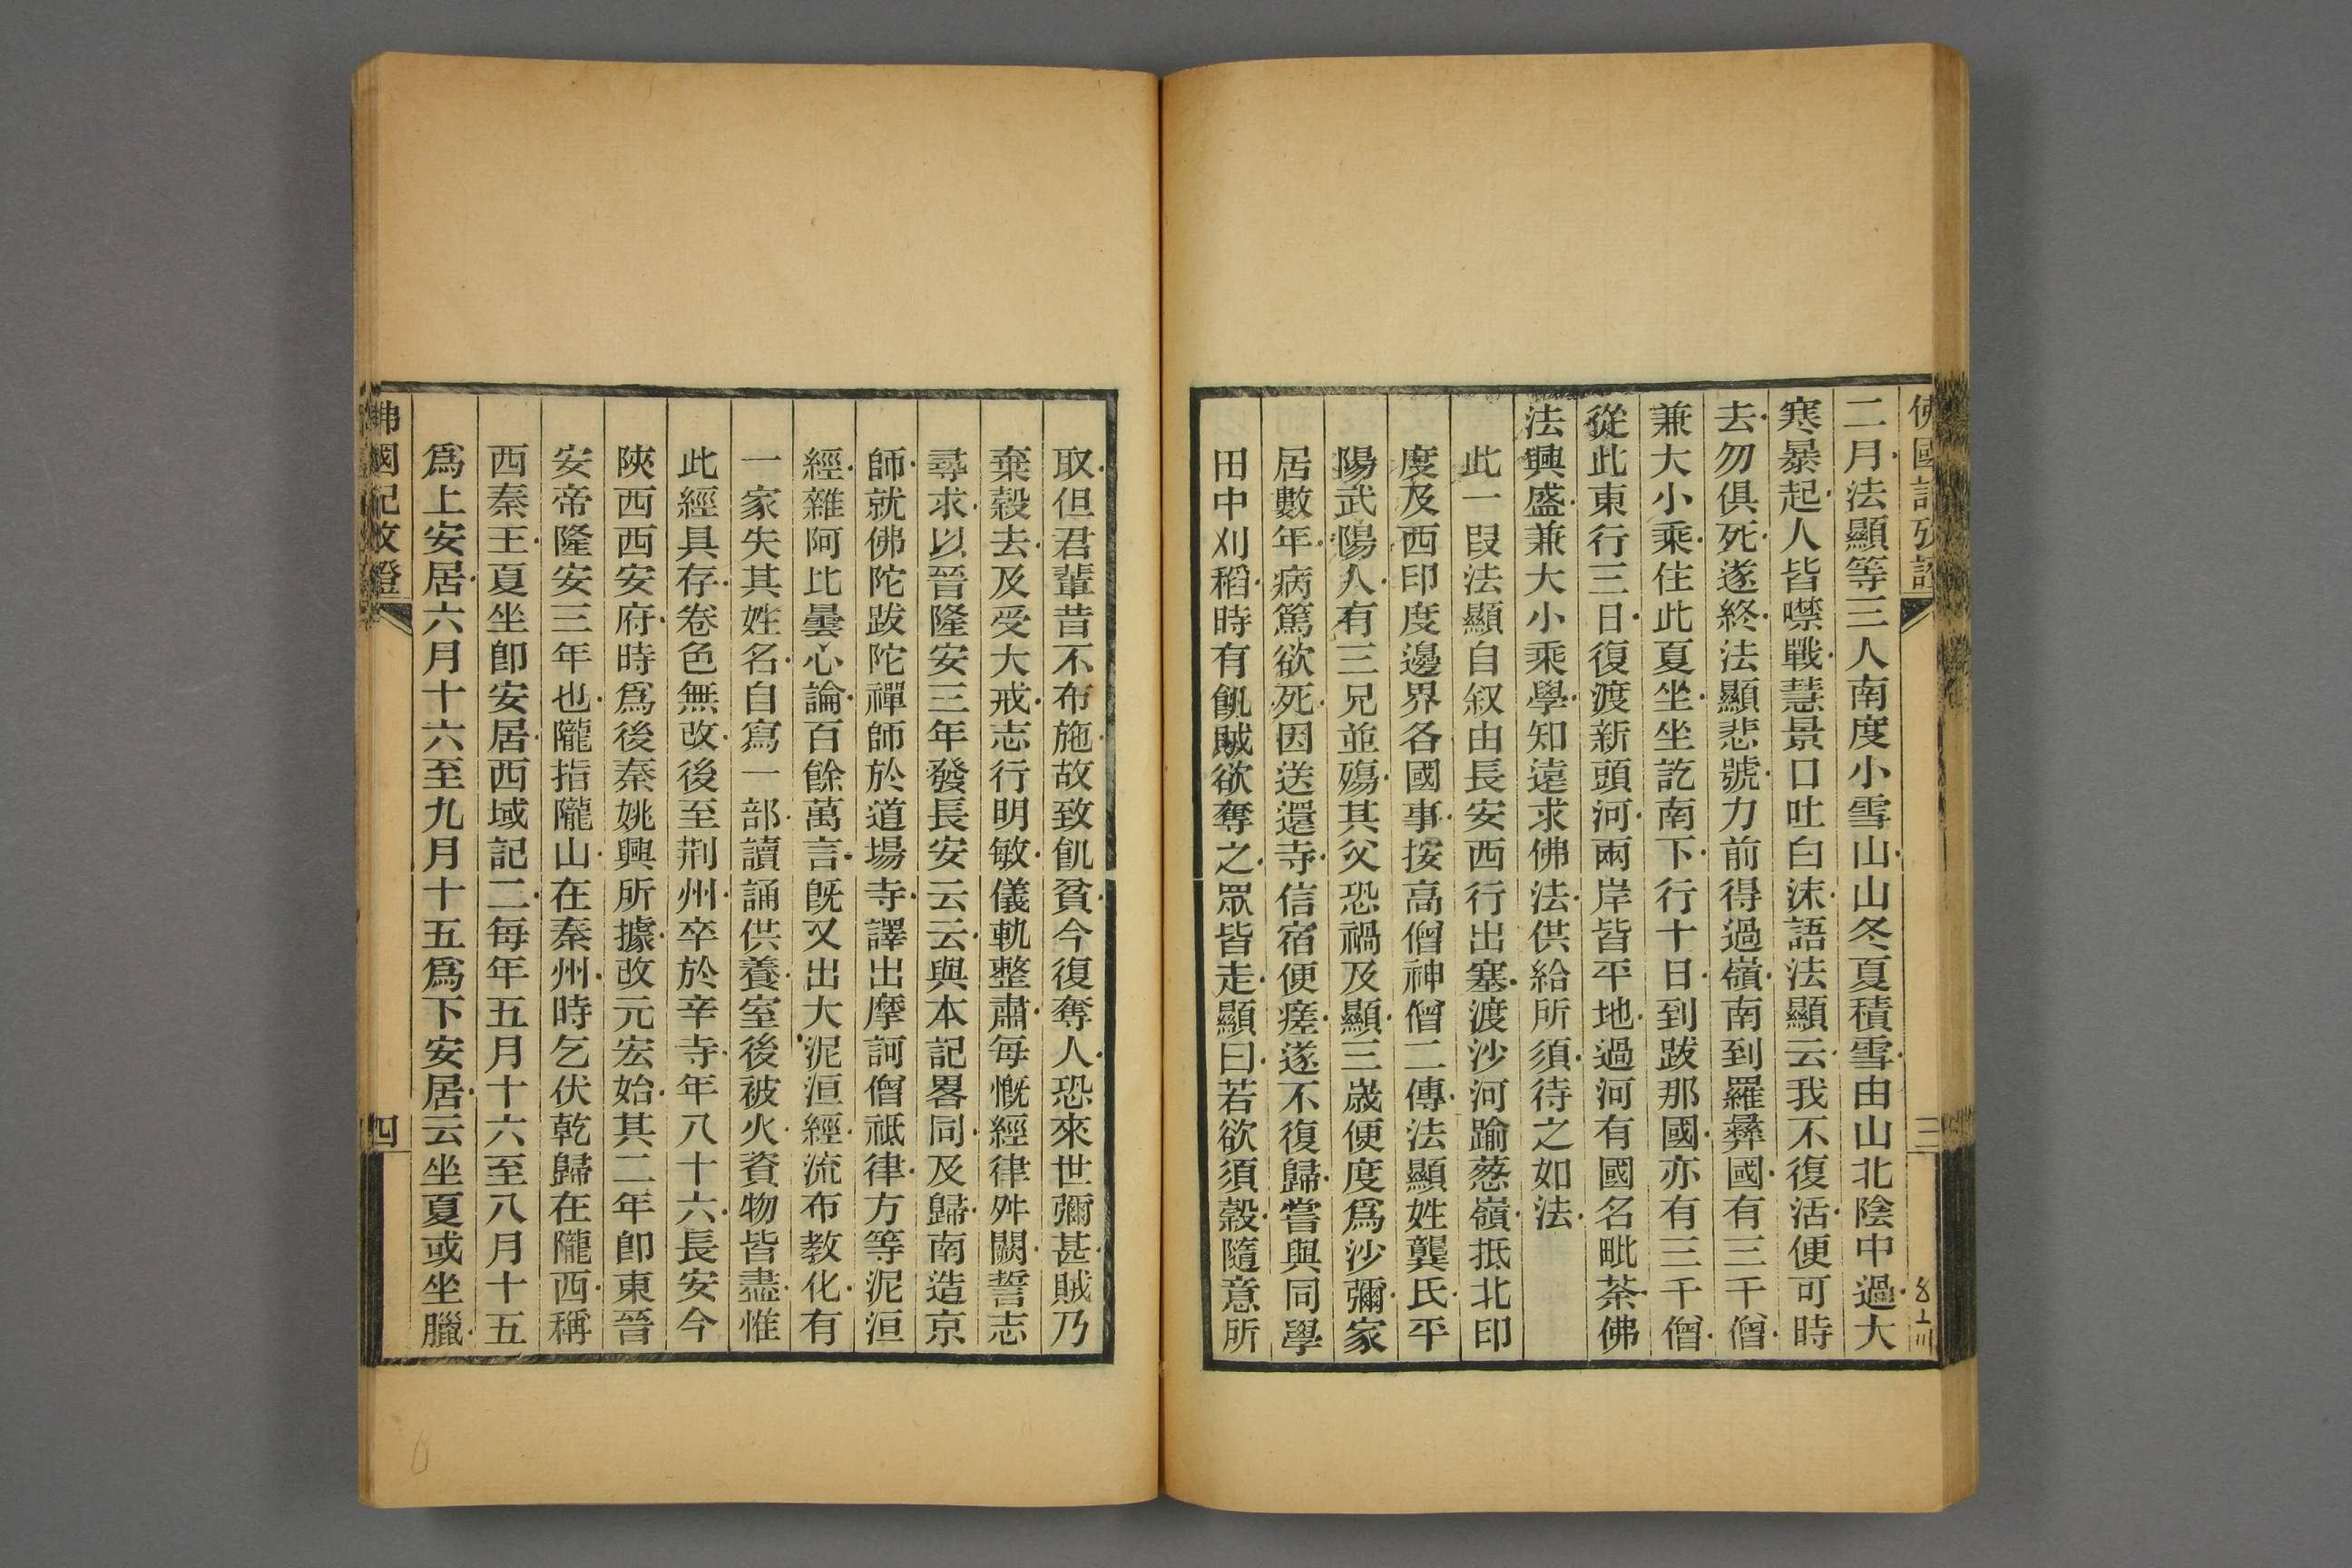 佛國記攷證
三
二月法顯等三人南度小雪山山冬夏積雪由山北陰中過大
寒暴起人皆噤戰慧景口吐白沫語法顯云我不復活便可時
去勿俱死遂終法顯悲號力前得過嶺南到羅彝國有三千僧
兼大小乘住此夏坐坐訖南下行十日到跋那國亦有三千僧
從此東行三日復渡新頭河兩岸皆平地過河有國名毗荼佛
法興盛兼大小乘學知遠求佛法供給所須待之如法
此一段法顯自叙由長安西行出塞渡沙河踰葱嶺抵北印
度及西印度邊界各國事按高僧神僧二傳法顯姓龔氏平
陽武陽人有三兄並殤其父恐禍及顯三歲便度爲沙彌家
居數年病篤欲死因送還寺信宿便瘥遂不復歸嘗與同學
田中刈稻時有飢賊欲奪之眾皆走顯曰若欲須穀隨意所
取但君輩昔不布施故致飢貧今復奪人恐來世彌甚賊乃
棄穀去及受大戒志行明敏儀軌整肅每慨經律舛闕誓志
尋求以晉隆安三年發長安云云與本記畧同及歸南造京
師就佛陀跋陀禪師於道場寺譯出摩訶僧祗律方等泥洹
經雜阿比曇心論百餘萬言既又出大泥洹經流布教化有
一家失其姓名自寫一部讀誦供養室後被火資物皆盡惟
此經具存卷色無改後至荆州卒於辛寺年八十六長安今
陝西西安府時爲後秦姚興所據改元宏始其二年卽東晉
安帝隆安三年也隴指隴山在秦州時乞伏乾歸在隴西稱
西秦王夏坐卽安居西域記二每年五月十六至八月十五
爲上安居六月十六至九月十五爲下安居云坐夏或坐臘
佛國記攷證
四